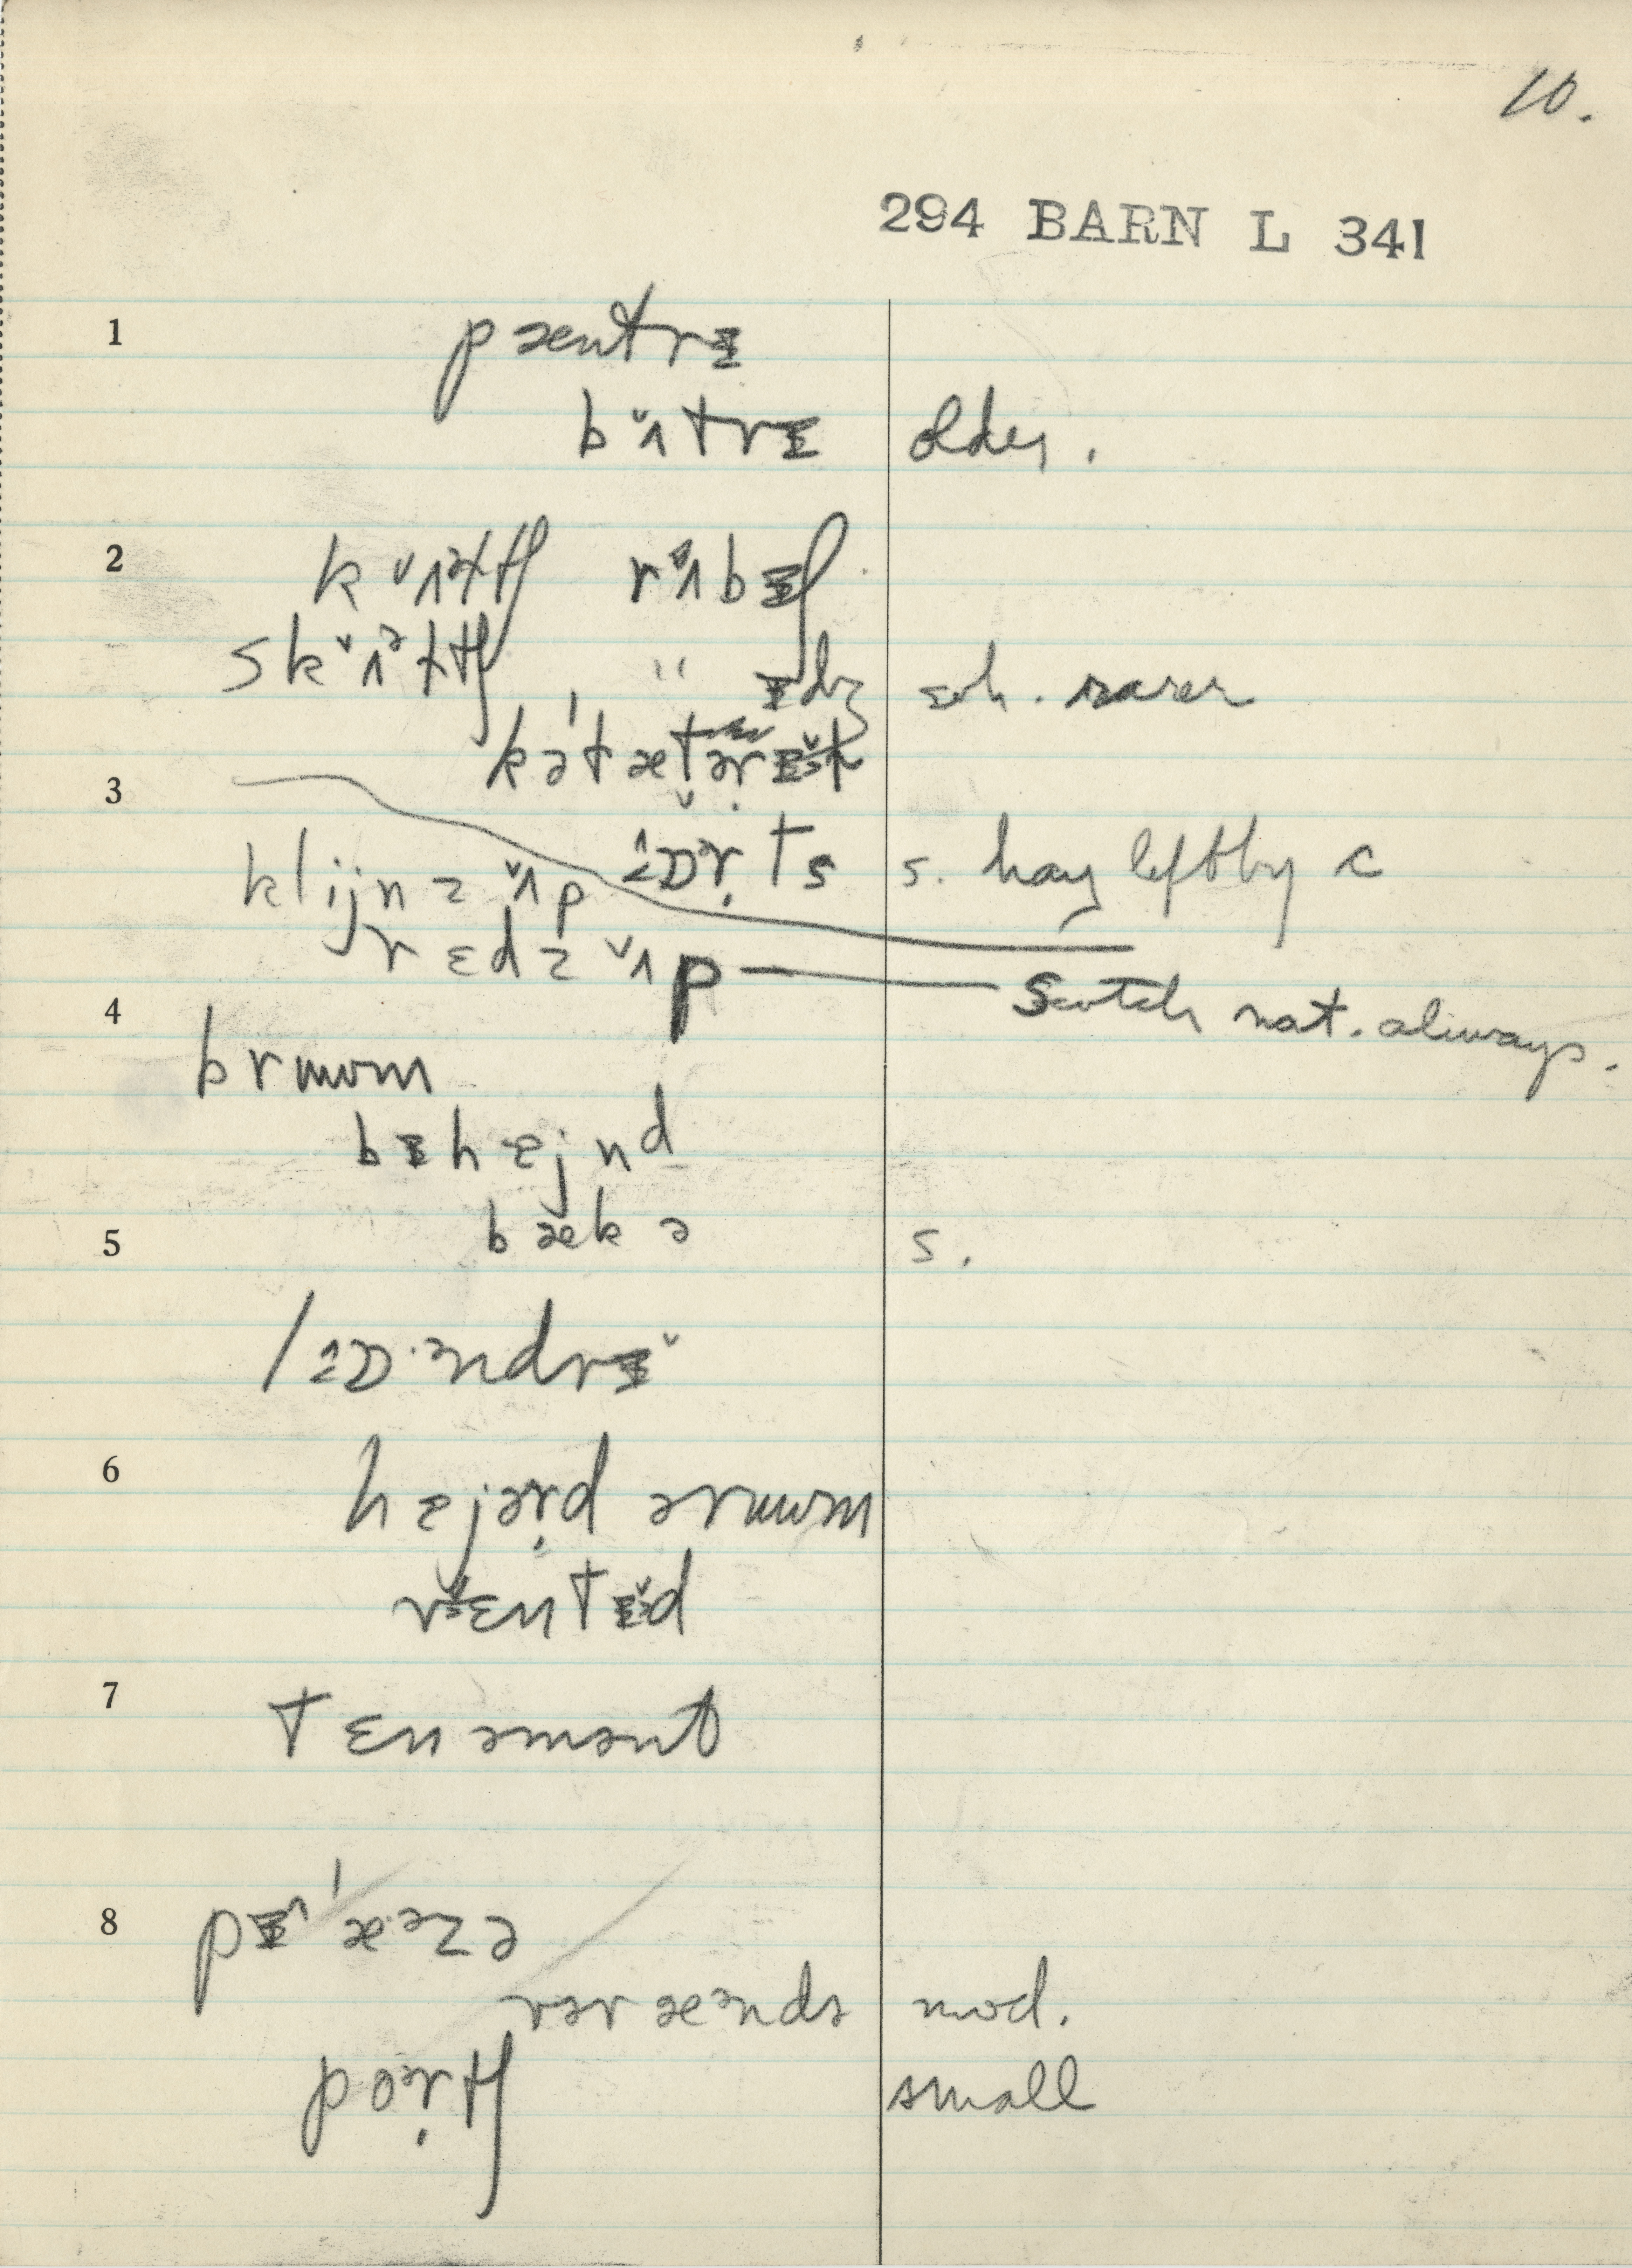 10.
294 BARN L 341
1 pæntrɨ
bʌ̌trɨ older.
2 kʌ̌ɪtʃ rʌ̌bɨʃ
skʌ̌ᵊtʃ " ɨdʒ rarer
kətætərɨ̌k
3 ɔɒɚ̣ts s. hay left by c
klijnz ʌ̌p
rɛdz ʌ̌p Scotch nat. always.
4 brʊwm
bɨhɐjnd
5 bækə s.
lɔɒ·ndrɨ̌
6 hɐjɚ̣d ərʊwm
rɛntɨ̌d
7 tɛnəmənt
8 pɨ'æᵊzə
vərændə mod.
poɚ̣tʃ small